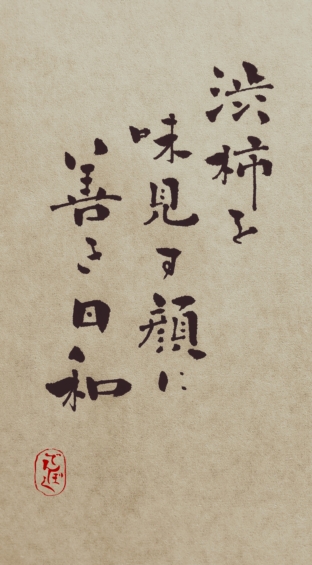 渋柿を
味見す顔に
善き日和